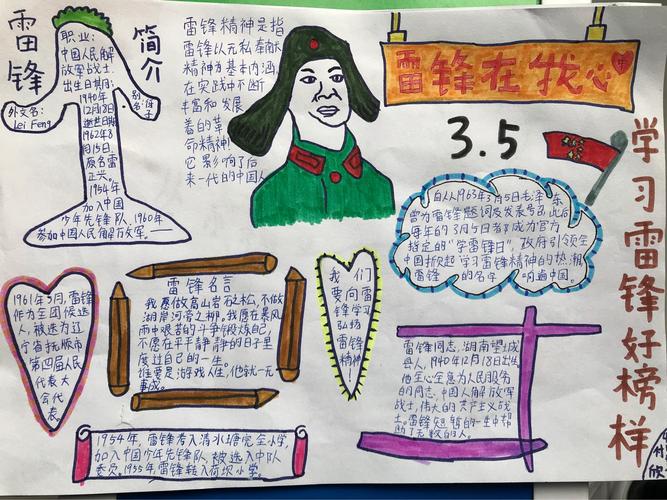 雷锋
简介
职业：
中国人民解
放军战士
出生日期：
1940年
12月18日
逝世日期
1962年8
月15日，
原名雷
正兴。
1954年
加入中国
少年先锋队，1960年
参加中国人民解放军。
外文名：
Lei Feng
雷锋精神是指
雷锋以无私奉献
精神为基本内涵，
在实践中不断
丰富和发展
着的革
命精神
它影响了后
来一代的中国人
雷锋在我心中
3.5
学习雷锋好榜样
自从1963年3月5日毛泽东
曾为雷锋题词及发表号召，此后
每年的3月5日者成为官方
指定的“学雷锋日”，政府引领全
中国掀起学习雷锋精神的热潮
雷锋的名字响遍中国。
1961年5月，雷锋
作为全团候选
人，被选为辽
宁省抚顺市
第四届人民
代表大
会代
表
雷锋名言
我愿做高山岩石之松，不做
湖岸河旁之柳。我愿在暴风
雨中艰苦的斗争中锻炼自己，
不愿在平平静静的日子里
度过自己的一生。
谁要是游戏人生，他就一无
事成。
我们
要向雷
锋学习
弘扬
雷锋
精神
雷锋同志，湖南望城
县人，1940年12月18日出生，
他全心全意为人民服务
的同志，中国人解放军
战士，伟大的共产主义战
士。雷锋短暂的一生中帮
助了无数的人。
1954年，雷锋考入清水塘完全小学，
加入中国少年先锋队，被选入中队
委员。1955年雷锋转入荷坝小学。